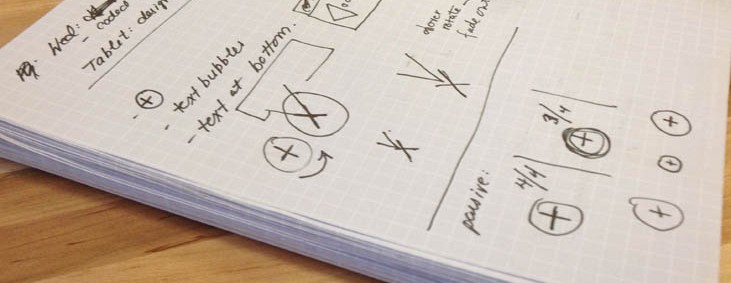 Wed:
- codecs
Tablet: design
- text bubbles
- text at bottom.
rotate -
fade out
passive:
4/4
3/4